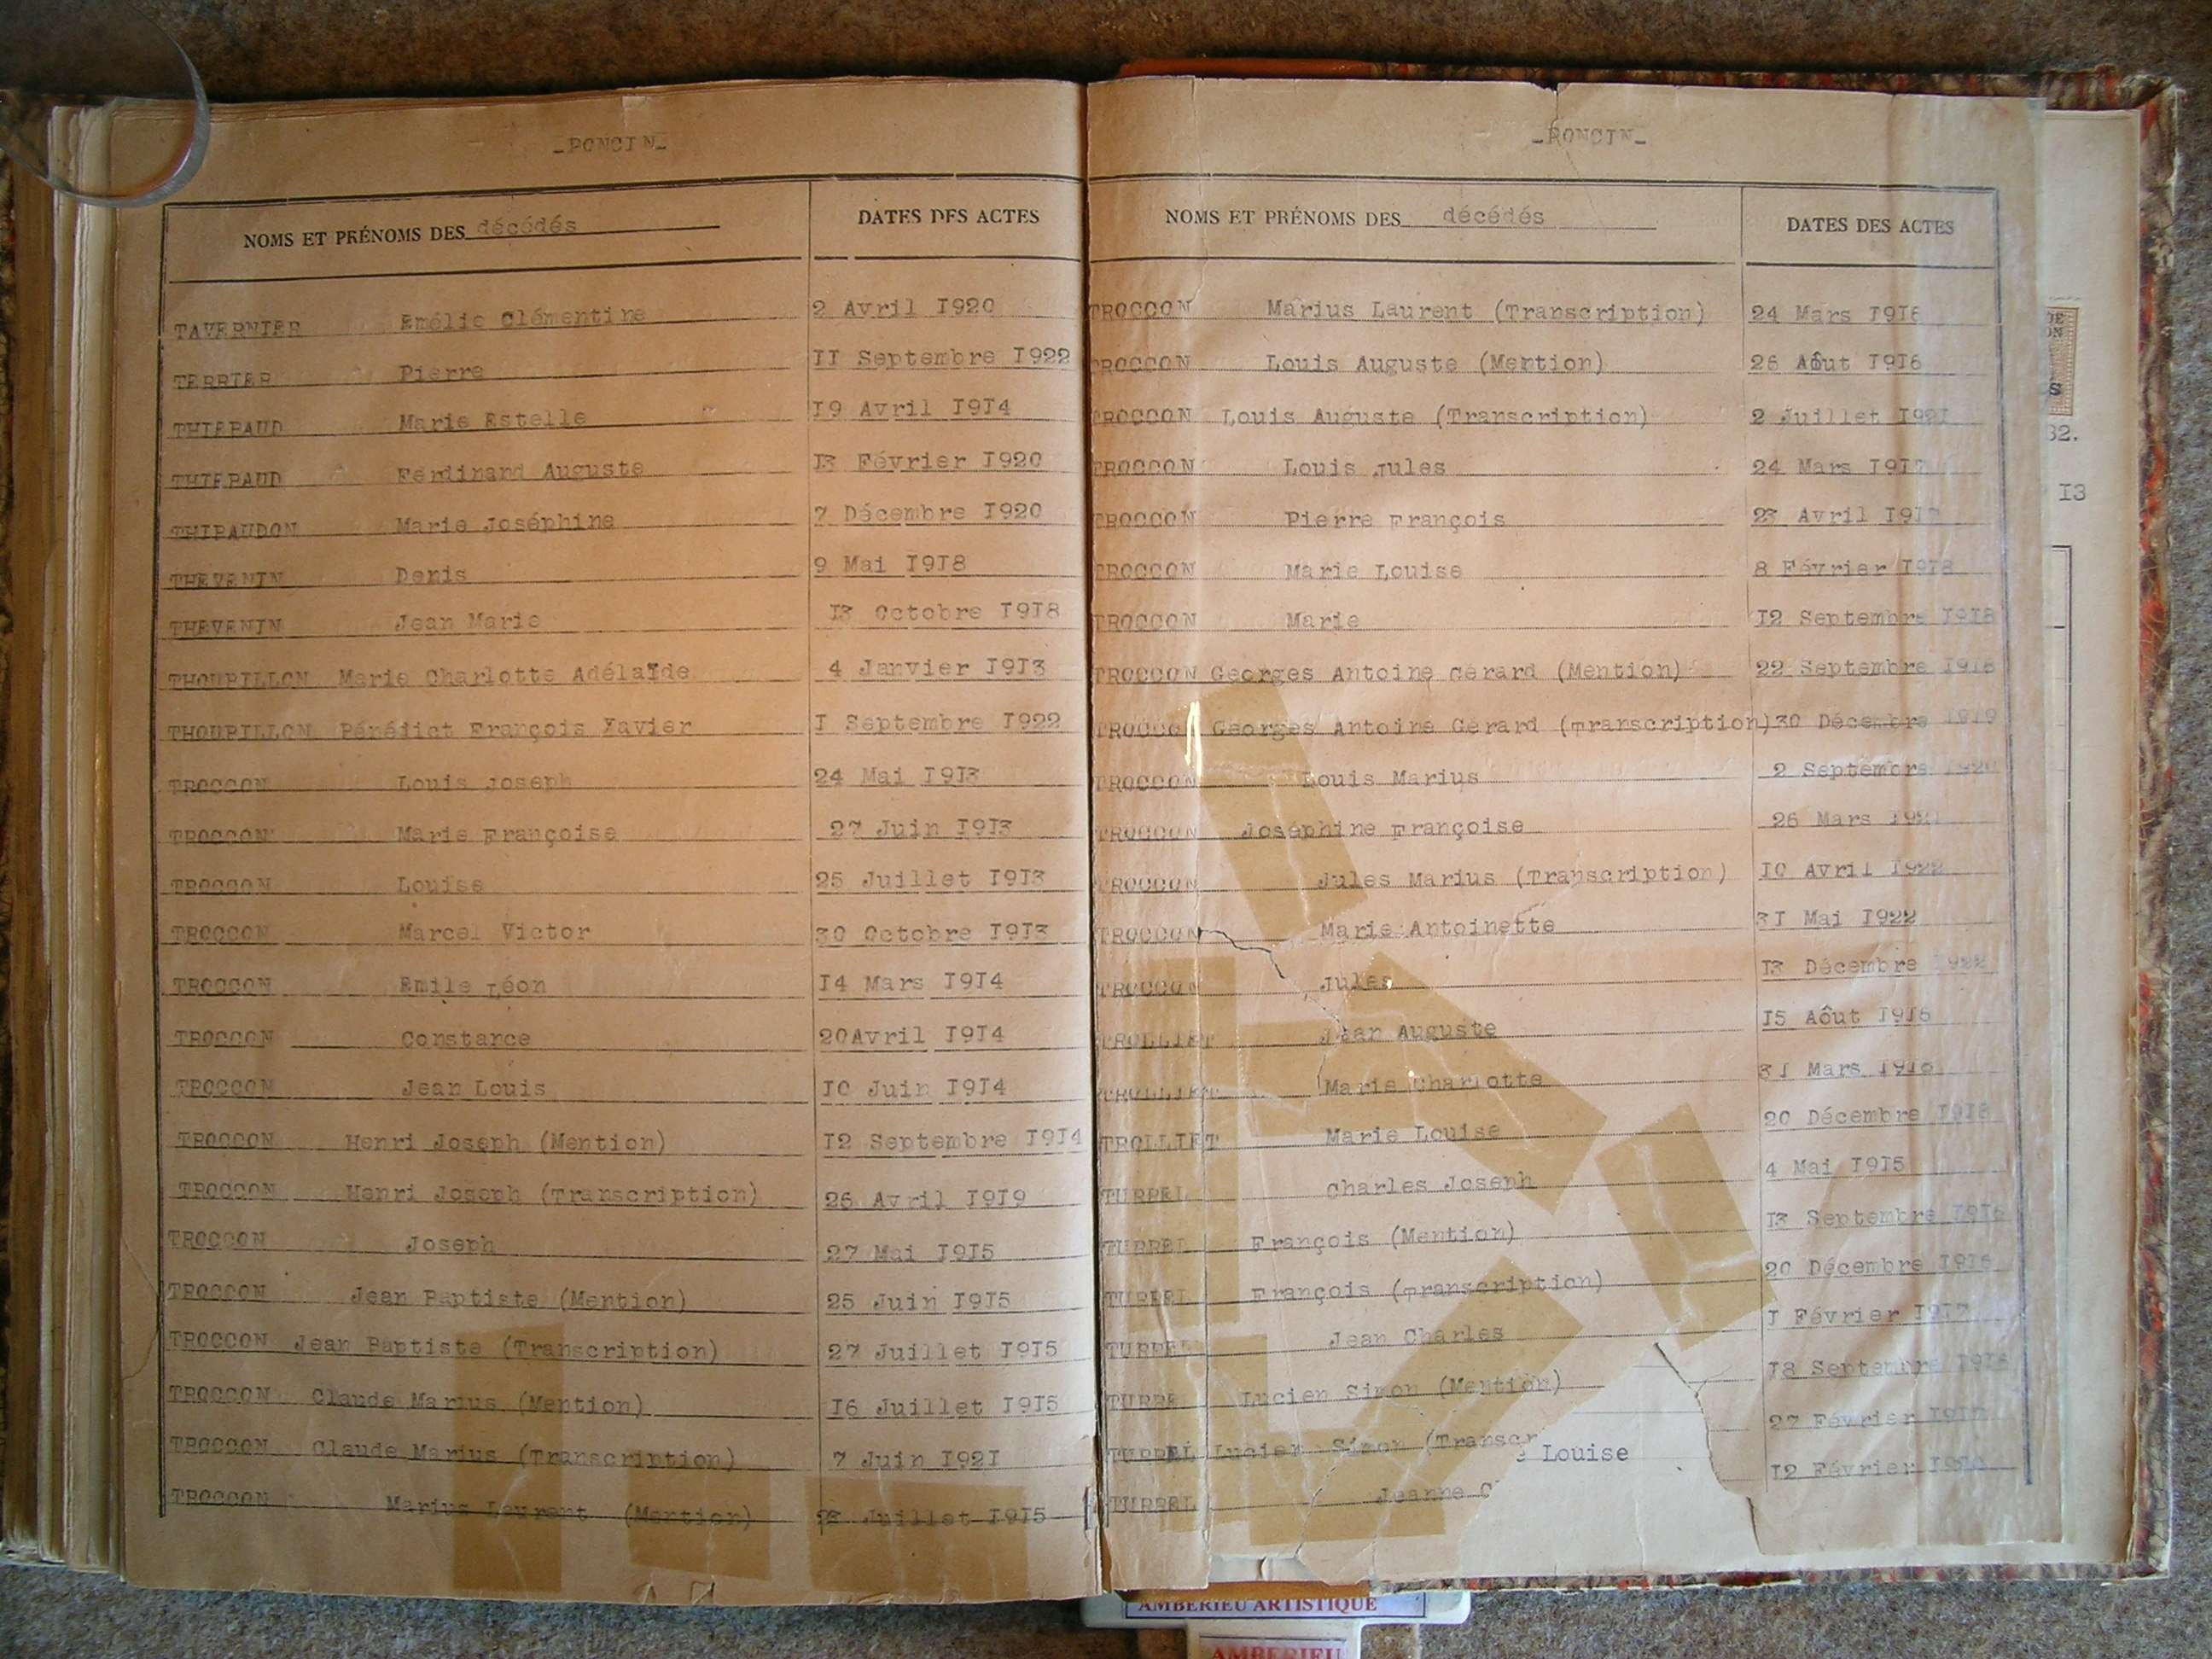 _PONCIN_
NOMS ET PRÉNOMS DES décédés DATES DES ACTES
TAVERNIER Emélie Clémentine 2 Avril I920
TERRIER Pierre II Septembre I922
THIEBAUD Marie Estelle I9 Avril I9I4
THIEBAUD Ferdinand Auguste I3 Février I920
THIBAUDON Marie Joséphine 7 Décembre I920
THEVENIN Denis 9 Mai I9I8
THEVENIN Jean Marie I3 Octobre I9I8
THOUBILLON Marie Charlotte Adélaïde 4 Janvier I9I3
THOUBILLON Bénédict François Xavier I Septembre I922
TROCCON Louis Joseph 24 Mai I9I3
TROCCON Marie Françoise 27 Juin I9I3
TROCCON Louise 25 Juillet I9I3
TROCCON Marcel Victor 30 Octobre I9I3
TROCCON Emile Léon I4 Mars I9I4
TROCCON Constance 20Avril I9I4
TROCCON Jean Louis I0 Juin I9I4
TROCCON Henri Joseph (Mention) I2 Septembre I9I4
TROCCON Henri Joseph (Transcription) 26 Avril I9I9
TROCCON Joseph 27 Mai I9I5
TROCCON Jean Baptiste (Mention) 25 Juin I9I5
TROCCON Jean Baptiste (Transcription) 27 Juillet I9I5
TROCCON Claude Marius (Mention) I6 Juillet I9I5
TROCCON Claude Marius (Transcription) 7 Juin I92I
TROCCON Marius Laurent (Mention) Juillet I9I5
_PONCIN_
NOMS ET PRÉNOMS DES décédés DATES DES ACTES
TROCCON Marius Laurent (Transcription) 24 Mars I9I6
TROCCON Louis Auguste (Mention) 26 Aôut I9I6
TROCCON Louis Auguste (Transcription) 2 Juillet I92I
TROCCON Louis Jules 24 Mars I9I7
TROCCON Pierre François 23 Avril I9I7
TROCCON Marie Louise 8 Février I9I8
TROCCON Marie I2 Septembre I9I8
TROCCON Georges Antoine Gérard (Mention) 22 Septembre I9I8
TROCCON Georges Antoine Gérard (Transcription) 30 Décembre I9I9
TROCCON Louis Marius 2 Septembre I920
TROCCON Joséphine Françoise 26 Mars I92I
TROCCON Jules Marius (Transcription) I0 Avril I922
TROCCON Marie Antoinette 3I Mai I922
TROCCON Jules I3 Décembre I922
TROLLIET Jean Auguste I5 Aôut I9I6
TROLLIET Marie Charlotte 3I Mars
TROLLIET Marie Louise 20 Décembre I9I8
TURREL Charles Joseph 4 Mai I9I5
TURREL François (Mention) I3 Septembre I9I6
TURREL François (Transcription) 20 Décembre I9I6
TURREL Jean Charles I Février I9I7
TURREL Lucien Simon (Mention) I8 Septembre
TURREL Lucien Simon (Transcr 27 Février
Louise
TURREL Jeanne C I2 Février
32.
I3
AMBERIEU ARTISTIQUE
AMBERIEU